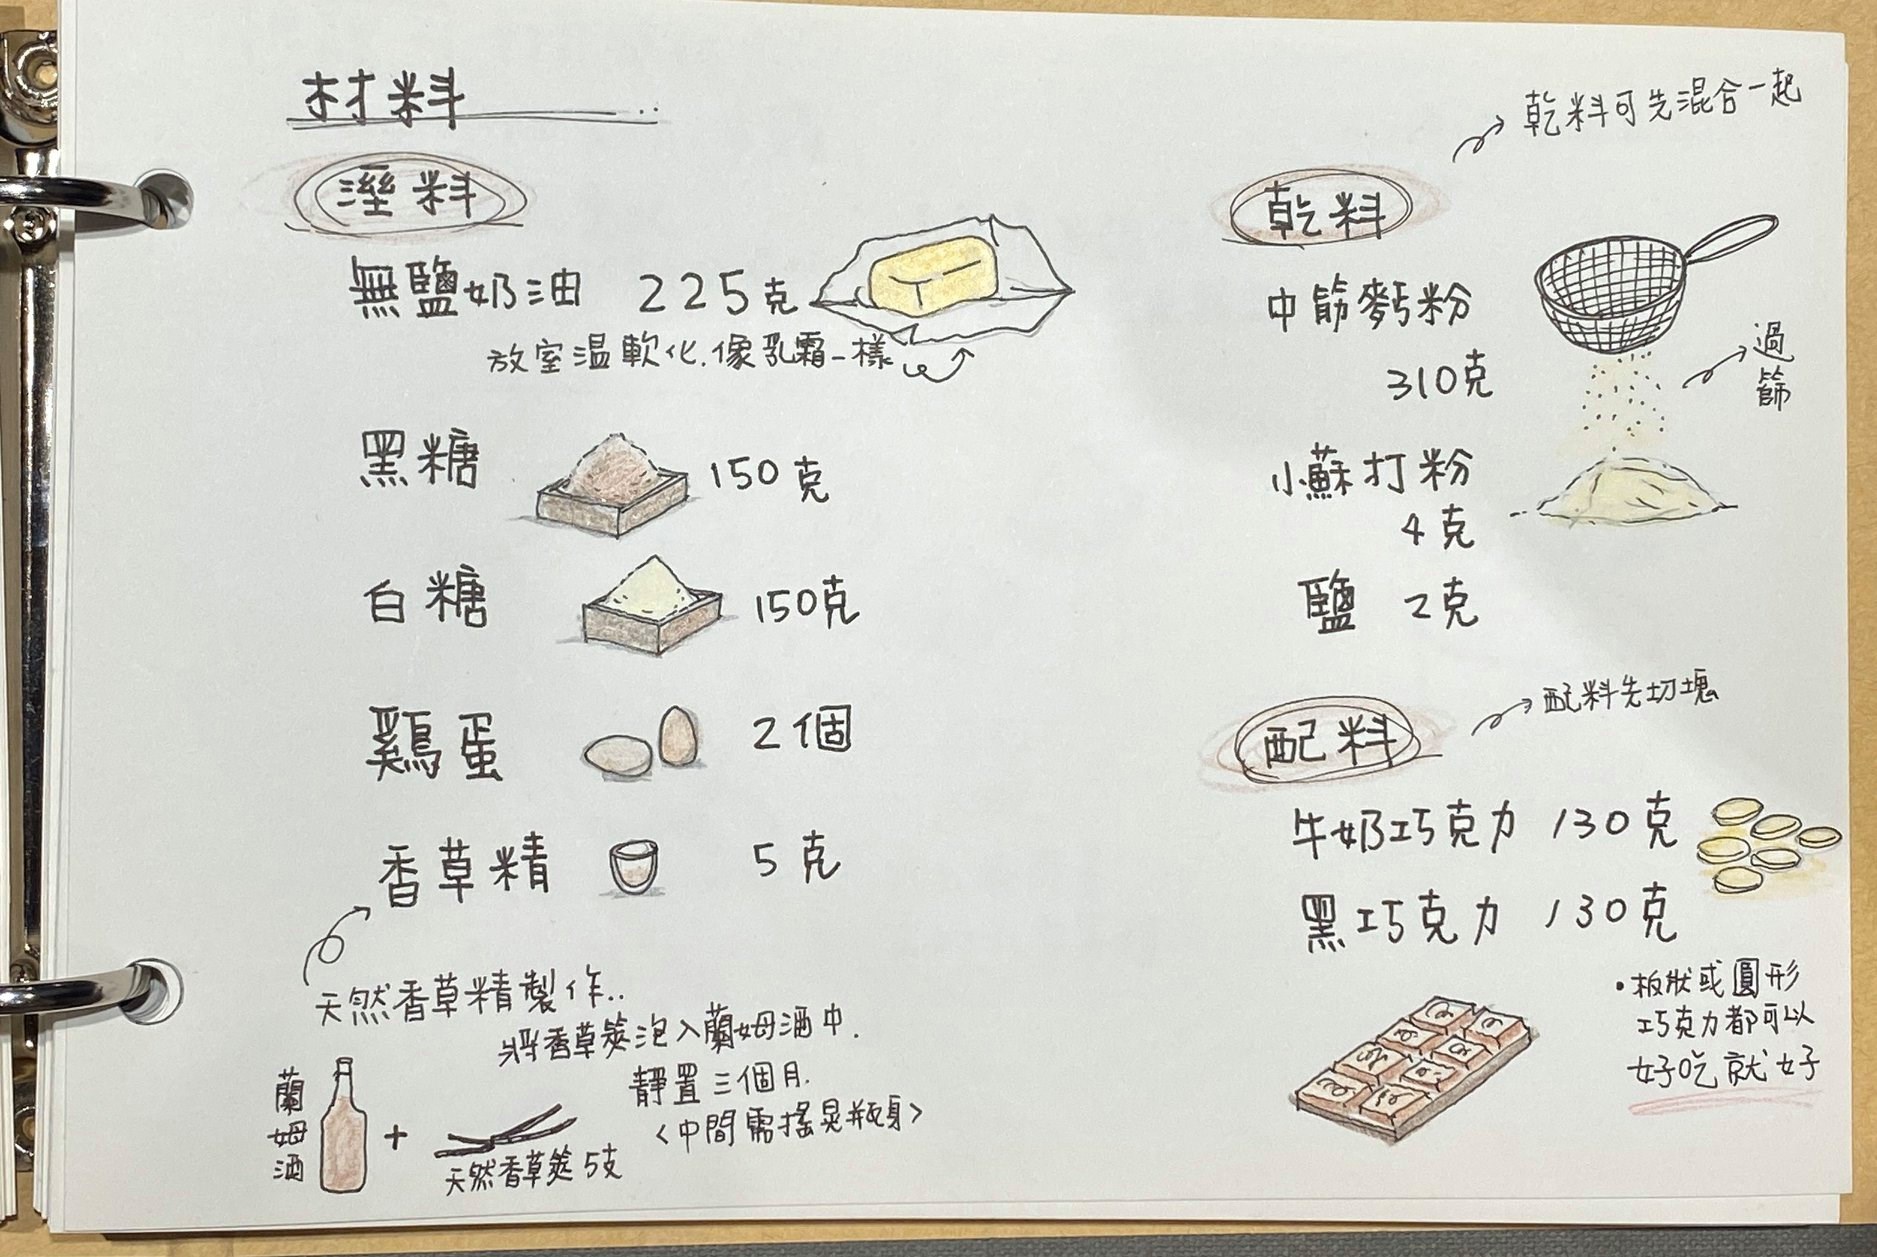 材料
溼料
無鹽奶油 225克
放室溫軟化.像乳霜一樣
黑糖 150克
白糖 150克
鷄蛋 2個
香草精 5克
天然香草精製作..
將香草筴泡入蘭姆酒中.
靜置三個月.
<中間需搖晃瓶身>
蘭姆酒
+
天然香草筴 5支
乾料可先混合一起
乾料
中筋麵粉
310克
過篩
小蘇打粉
4克
鹽 2克
配料先切塊
配料
牛奶巧克力 130克
黑巧克力 130克
•板狀或圓形
巧克力都可以
好吃就好